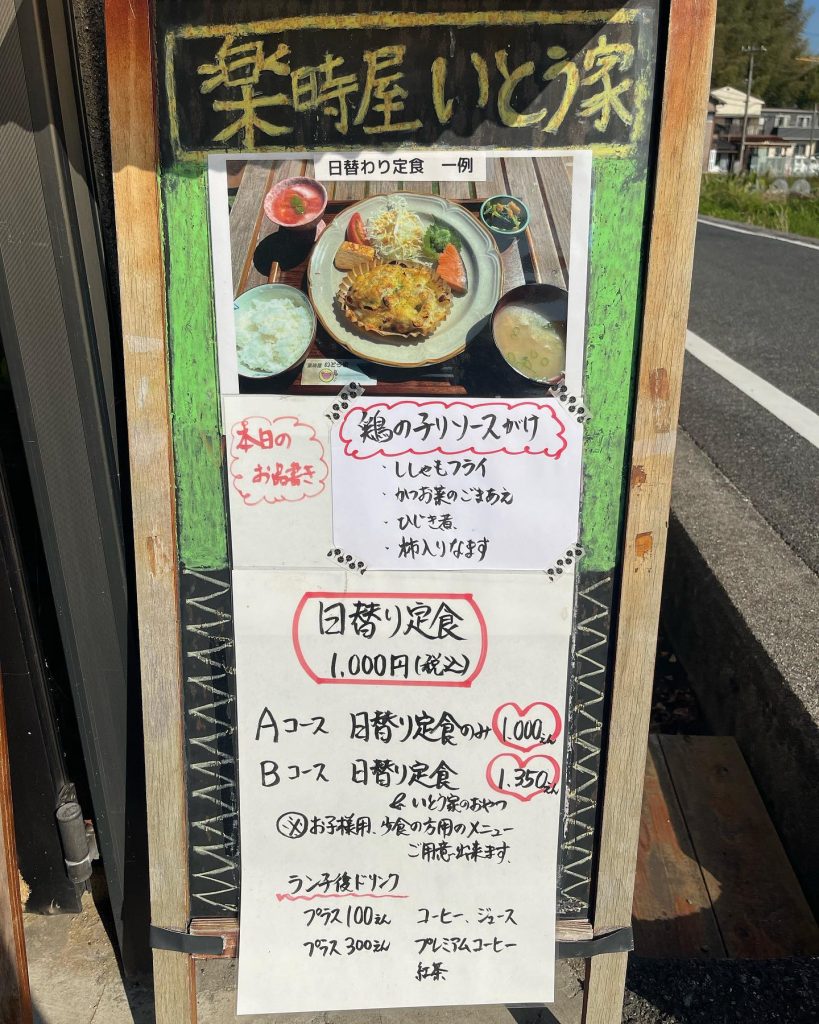 楽時屋 いとう家
日替わり定食 一例
楽時屋 いとう家
本日の
お品書き
鶏のチリソースがけ
・ししゃもフライ
・かつお菜のごまあえ
・ひじき煮、
・柿入りなます
日替り定食
1,000円(税込)
Aコース 日替り定食のみ 1.000えん
Bコース 日替り定食 1.350えん
& いとう家のおやつ
※お子様用、少食の方用のメニュー
ご用意出来ます、
ランチ後ドリンク
プラス100えん コーヒー、ジュース
プラス300えん プレミアムコーヒー
紅茶